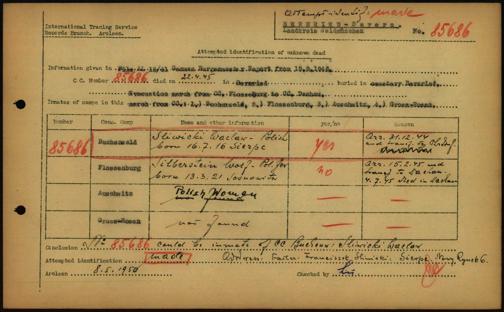 Attempt. Identif. made
International Tracing Service
Records Branch. Arolsen.
BERNRIED-Bavaria
Landkreis Weilheim
No. 85686
Attempted identification of unknown dead
Information given in German Burgermaster Report from
CC. Number 85686 died on 22.4.45 in Bernried buried in cemetery Bernried
Evacuation march from CC. Flossenburg to CC. Dachau
Inmates of same in this march from CC. 1.) Buchenwald, 2.) Flossenburg, 3.) Auschwitz, 4.) Gross-Rosen.
Number
Conc. Camp
Name and other information
yes/no
Remarks
85686
Buchenwald
Sliwicki Waclaw - Polish
born 16.7.16 Sierpc
yes
Arr. 21.12.44
and transf. to
Flossenburg
Silberstein Wolf - Pol.
born 13.3.21 Sosnowitz
no
Arr. 15.2.45 and
transf. to Dachau.
4.7.45 died in Dachau
Auschwitz
Polish Women
Gross-Rosen
not found
Conclusion No 85686 could be inmate of CC Buchenw: Sliwicki Waclaw
Attempted identification made Address: Father: Franciszek Sliwicki, Sierpc,
Arolsen 8.5.1950 Checked by